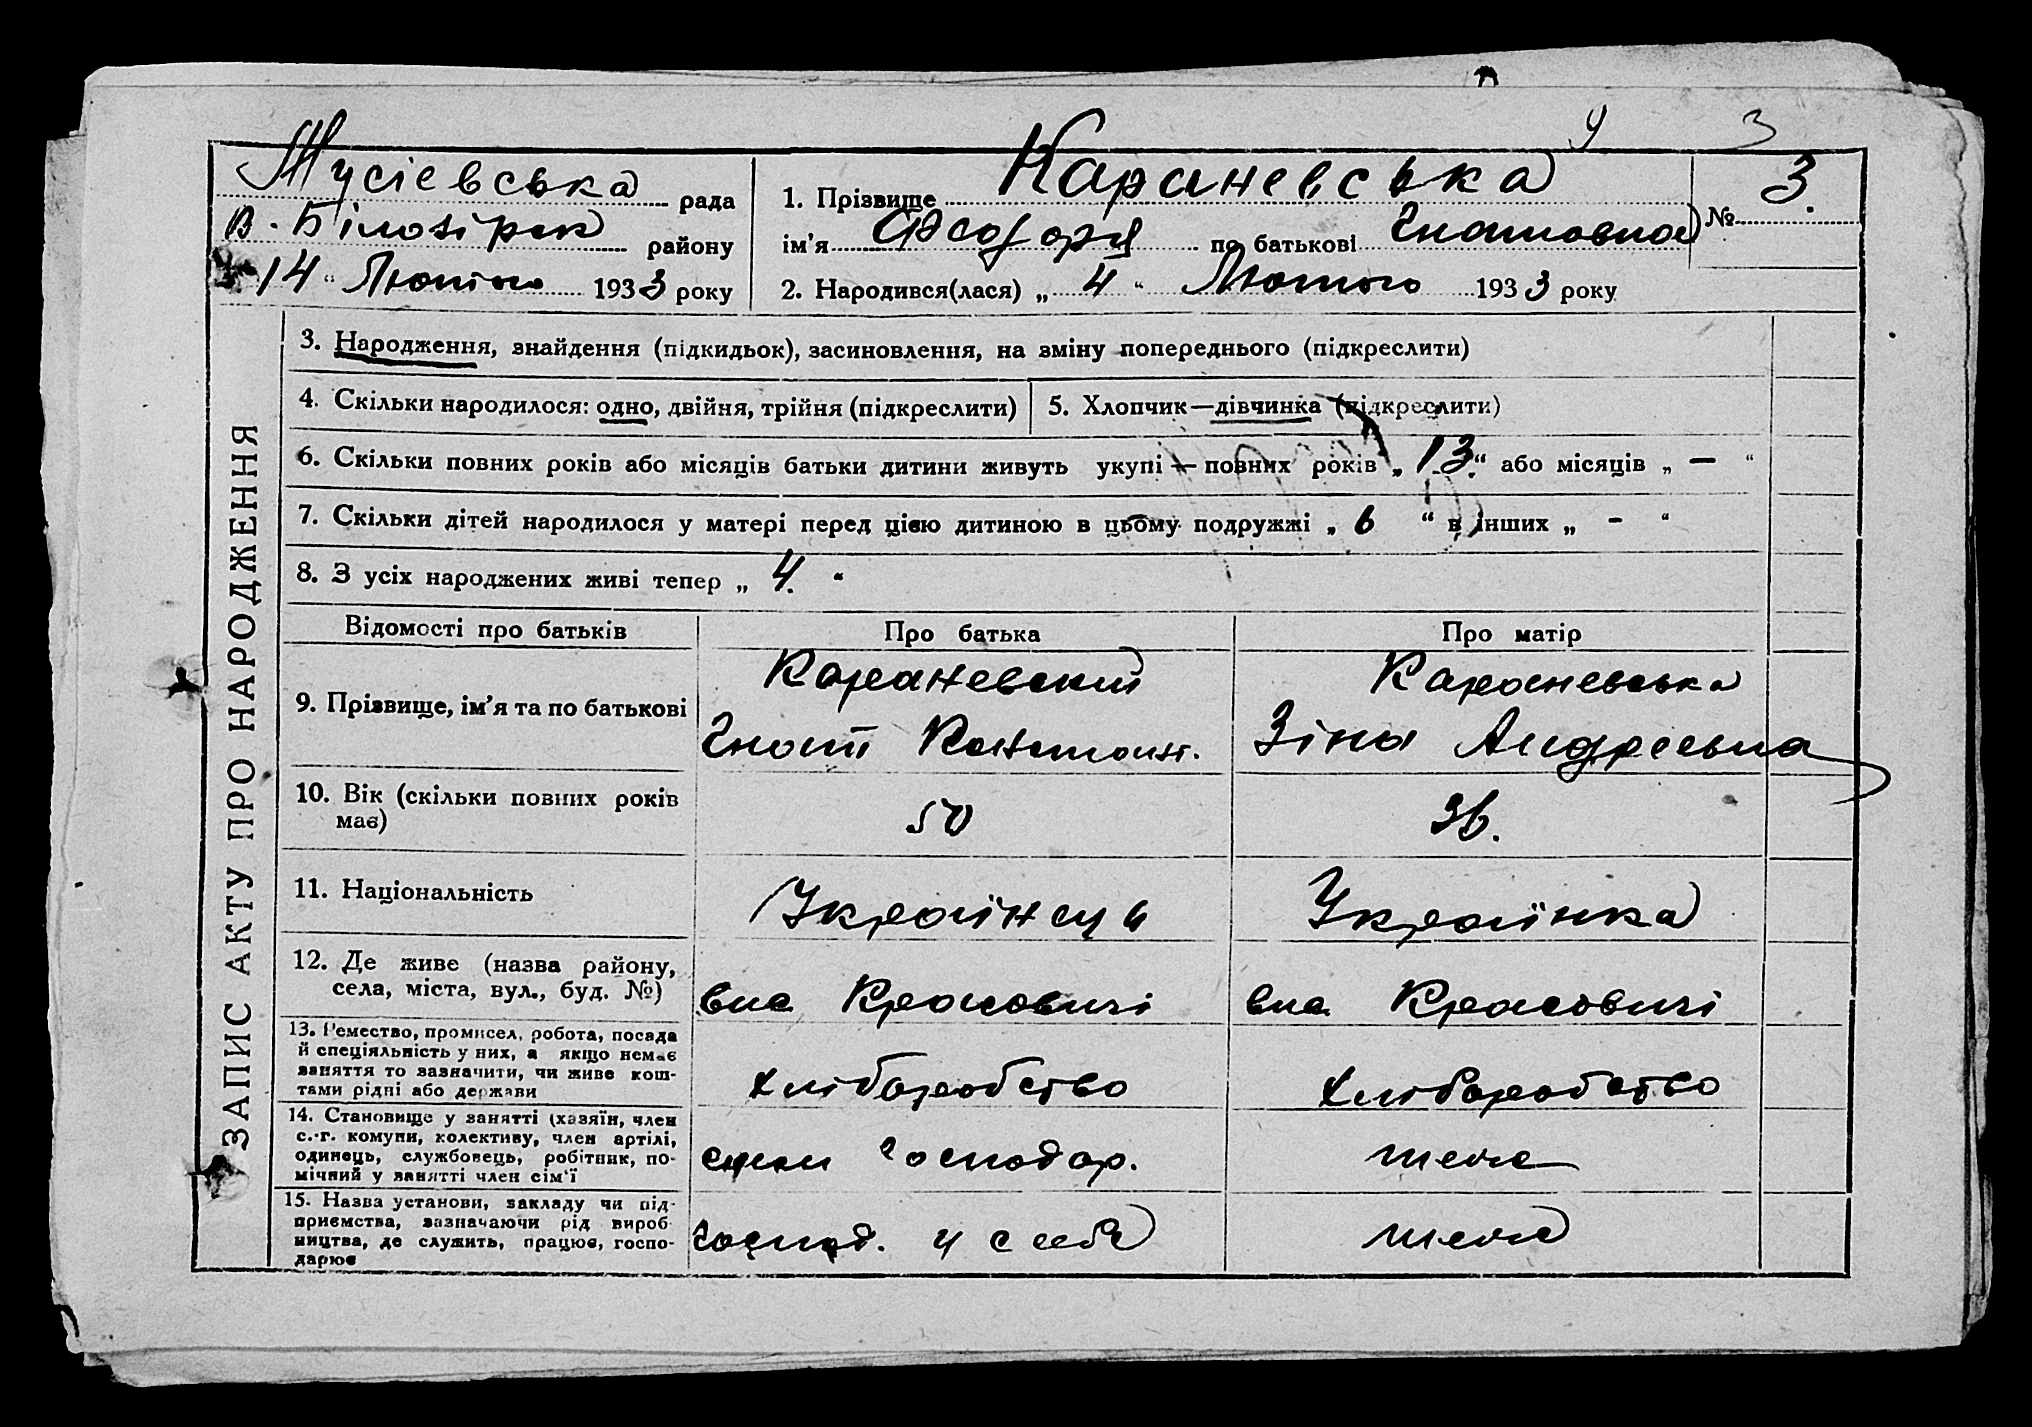 У 3
Мусієвська рада
В. Білозірск району
" 14 " Лютого 1933 року
1. Прізвище Караневська
ім'я Федора по батькові Гнатовна
2. Народився(лася) „ 4 " Лютого 1933 року
№ 3.
ЗАПИС АКТУ ПРО НАРОДЖЕННЯ
3. Народження, знайдення (підкидьок), засиновлення, на зміну попереднього (підкреслити)
4. Скільки народилося: одно, двійня, трійня (підкреслити)
5. Хлопчик—дівчинка (підкреслити)
6. Скільки повних років або місяців батьки дитини живуть укупі — повних років „ 13. " або місяців „ — "
7. Скільки дітей народилося у матері перед цією дитиною в цьому подружжі „ 6 " в інших „ - "
8. З усіх народжених живі тепер „ 4. "
Відомості про батьків Про батька Про матір
9. Прізвище, ім'я та по батькові
Караневский
Гнат Констант.
Караневська
Зіна Андреевна
10. Вік (скільки повних років
має)
50
36.
11. Національність
Українець
Українка
12. Де живе (назва району,
села, міста, вул., буд. №)
вис Красовичі
вис. Красовичі
13. Ремество, промисел, робота, посада
й спеціяльність у них, а якщо немає
заняття то зазначити, чи живе кош-
тами рідні або держави
хліборобство
хліборобство
14. Становище у занятті (хазяїн, член
с.-г. комуни, колективу, член артілі,
одинець, службовець, робітник, по-
мічний у занятті член сім'ї
член господар.
теж
15. Назва установи, закладу чи під-
приємства, зазначаючи рід вироб-
ництва, де служить, працює, госпо-
дарює
господ. у себе
теж